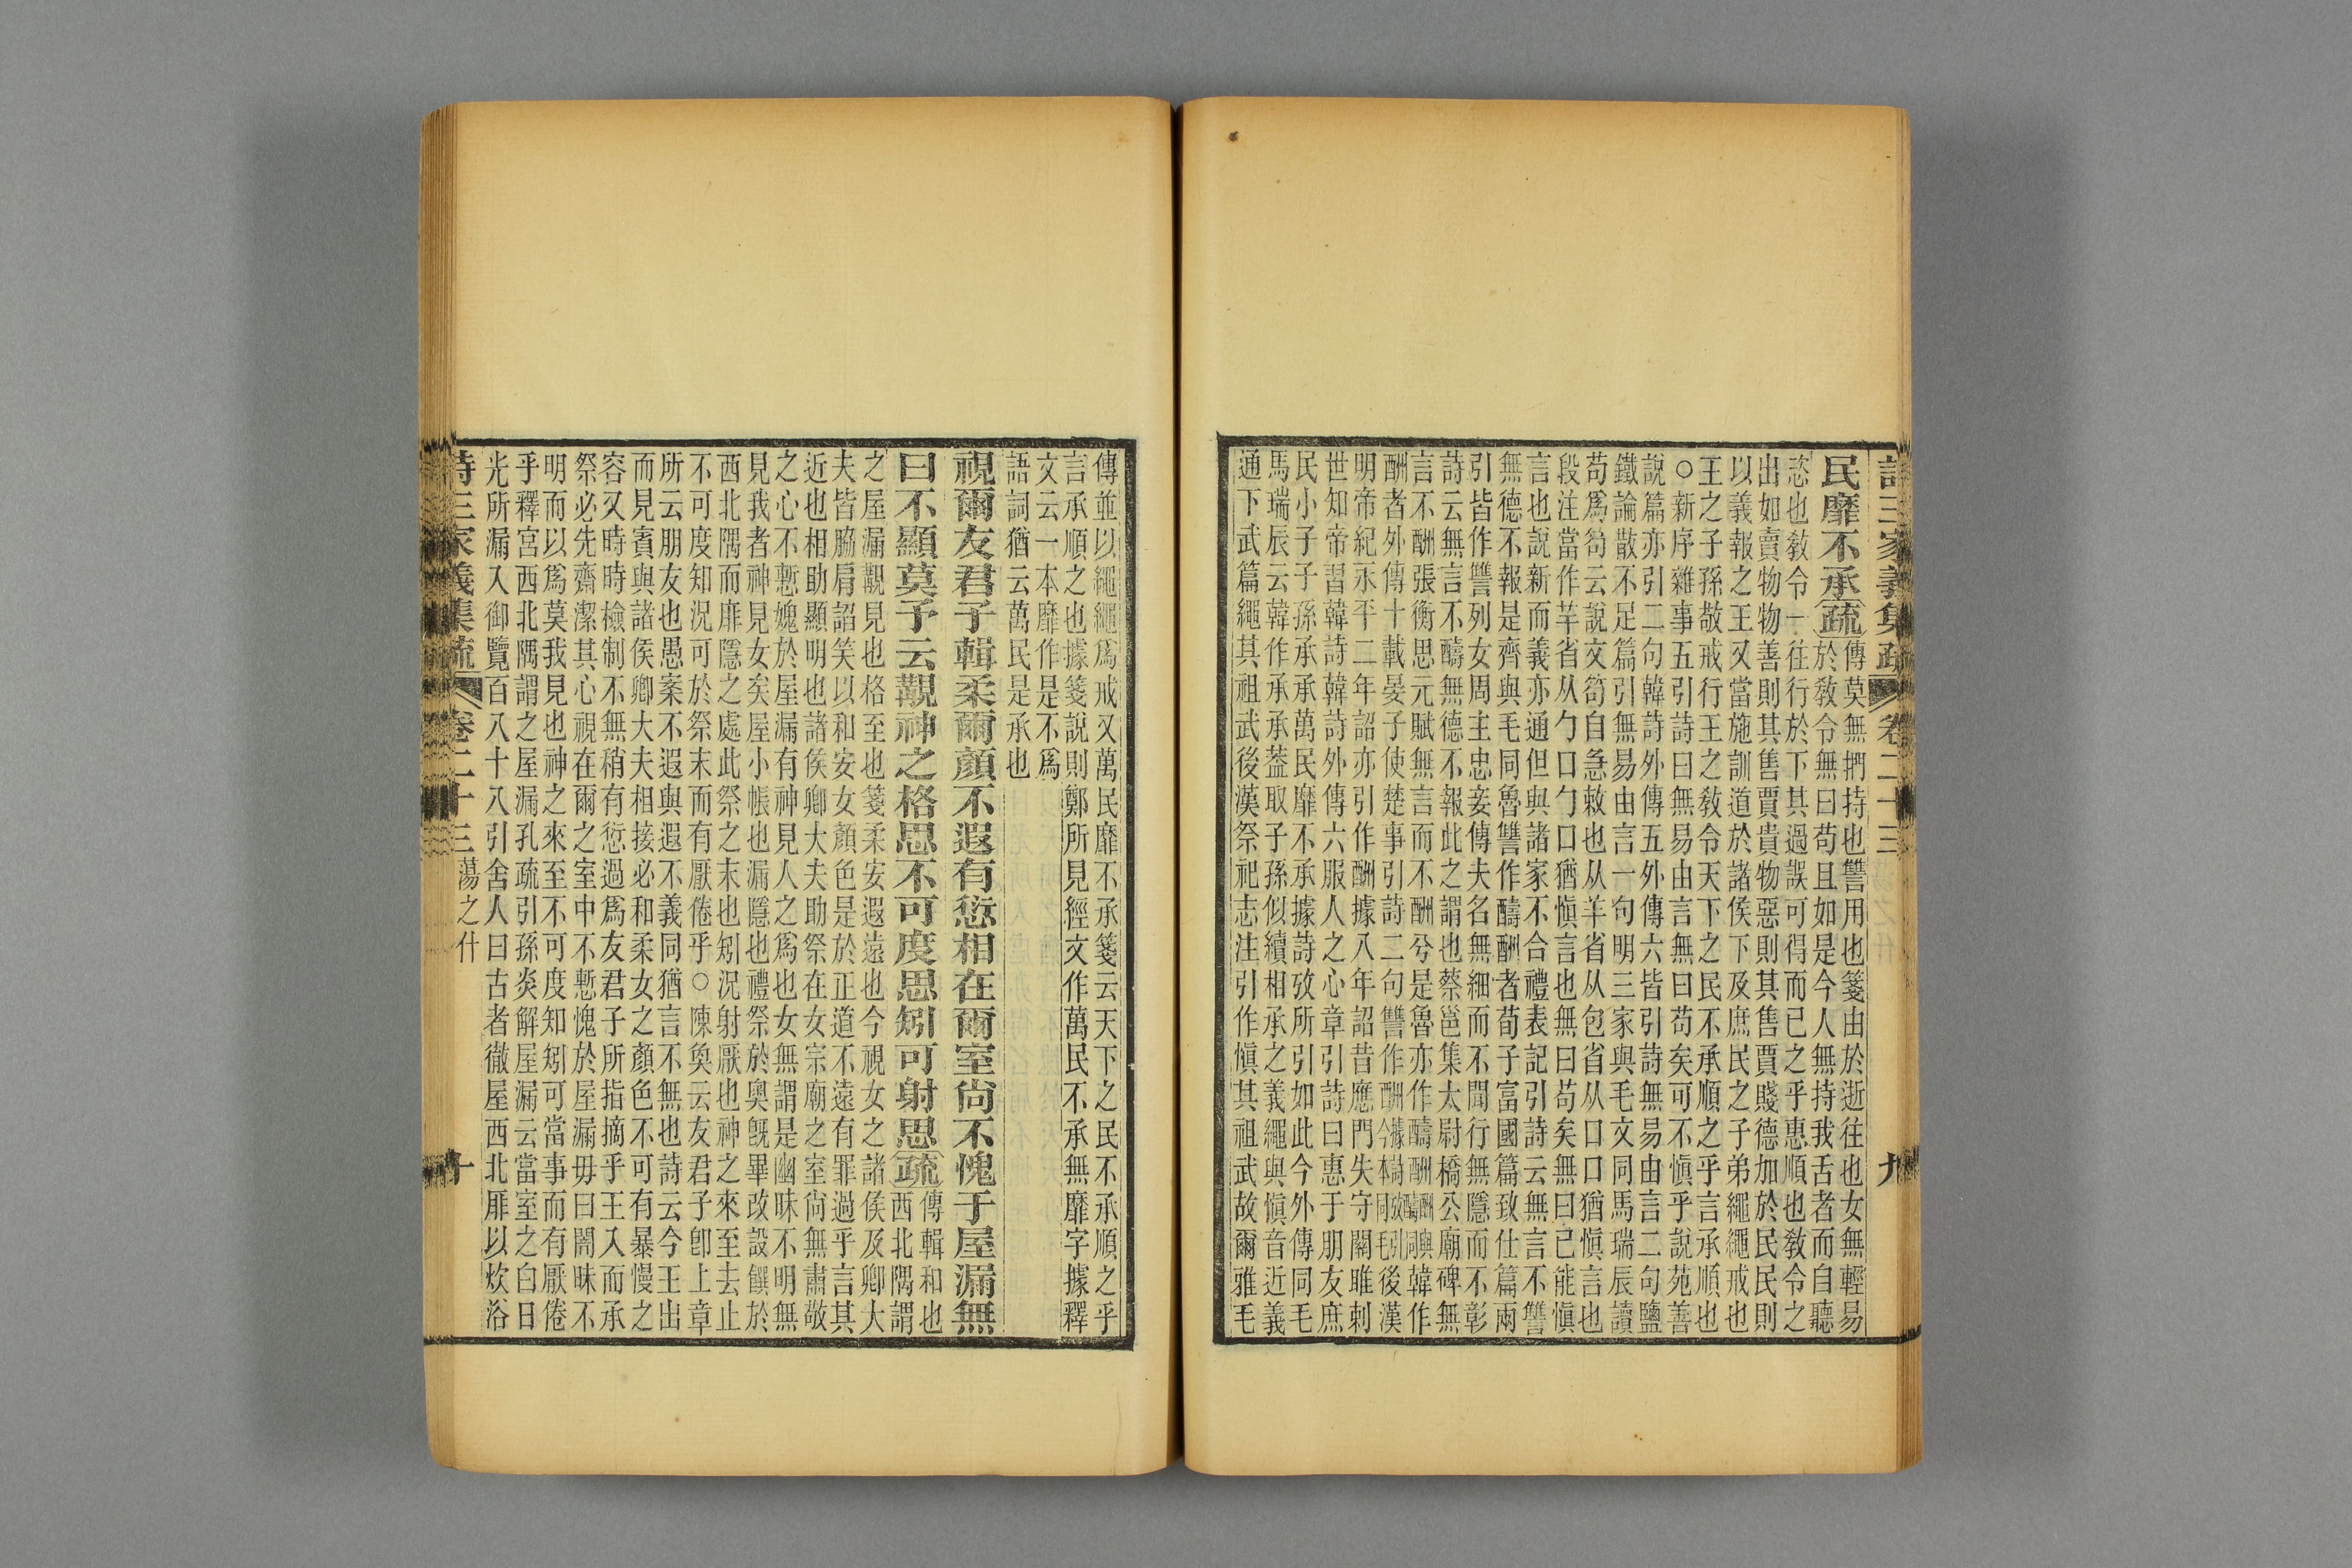 詩三家義集疏 卷二十三 九
民靡不承疏
傳莫無捫持也讐用也箋由於逝往也女無輕易
於敎令無曰苟且如是今人無持我舌者而自聽
恣也敎令一往行於下其過誤可得而已之乎惠順也敎令之
出如賣物物善則其售賈貴物惡則其售賈賤德加於民民則
以義報之王又當施訓道於諸侯下及庶民之子弟繩繩戒也
王之子孫敬戒行王之敎令天下之民不承順之乎言承順也
○新序雜事五引詩曰無易由言無曰苟矣可不愼乎說苑善
說篇亦引二句韓詩外傳五外傳六皆引詩無易由言二句鹽
鐵論散不足篇引無易由言一句明三家與毛文同馬瑞辰讀
苟爲茍云說文茍自急敕也从羊省从包省从口口猶愼言也
段注當作羊省从勹口勹口猶愼言也無曰苟矣無曰已能愼
言也說新而義亦通但與諸家不合禮表記引詩云無言不讐
無德不報是齊與毛同魯讐作醻酬者荀子富國篇致仕篇兩
引皆作讐列女周主忠妾傳夫名無細而不聞行無隱而不彰
詩云無言不醻無德不報此之謂也蔡邕集太尉橋公廟碑無
言不酬張衡思元賦無言而不酬兮是魯亦作醻酬酬與醻同韓作
酬者外傳十載晏子使楚事引詩二句讐作酬據詩攷引今本同毛後漢
明帝紀永平二年詔亦引作酬據八年詔昔應門失守關雎刺
世知帝習韓詩韓詩外傳六服人之心章引詩曰惠于朋友庶
民小子子孫承承萬民靡不承據詩攷所引如此今外傳同毛
馬瑞辰云韓作承承蓋取子孫似續相承之義繩與愼音近義
通下武篇繩其祖武後漢祭祀志注引作愼其祖武故爾雅毛
傳並以繩繩爲戒又萬民靡不承箋云天下之民不承順之乎
言承順之也據箋說則鄭所見經文作萬民不承無靡字據釋
文云一本靡作是不爲
語詞猶云萬民是承也
視爾友君子輯柔爾顏不遐有愆相在爾室尙不愧于屋漏無
曰不顯莫予云覯神之格思不可度思矧可射思疏
傳輯和也
西北隅謂
之屋漏覯見也格至也箋柔安遐遠也今視女之諸侯及卿大
夫皆脇肩諂笑以和安女顏色是於正道不遠有罪過乎言其
近也相助顯明也諸侯卿大夫助祭在女宗廟之室尙無肅敬
之心不慙媿於屋漏有神見人之爲也女無謂是幽昧不明無
見我者神見女矣屋小帳也漏隱也禮祭於奧旣畢改設饌於
西北隅而厞隱之處此祭之末也矧況射厭也神之來至去止
不可度知況可於祭末而有厭倦乎○陳奐云友君子卽上章
所云朋友也愚案不遐與遐不義同猶言不無也詩云今王出
而見賓與諸侯卿大夫相接必和柔女之顏色不可有暴慢之
容又時時檢制不無稍有愆過爲友君子所指摘乎王入而承
祭必先齋潔其心視在爾之室中不慙愧於屋漏毋曰闇昧不
明而以爲莫我見也神之來至不可度知矧可當事而有厭倦
乎釋宮西北隅謂之屋漏孔疏引孫炎解屋漏云當室之白日
光所漏入御覽百八十八引舍人曰古者徹屋西北厞以炊浴
詩三家義集疏 卷二十三 蕩之什 十